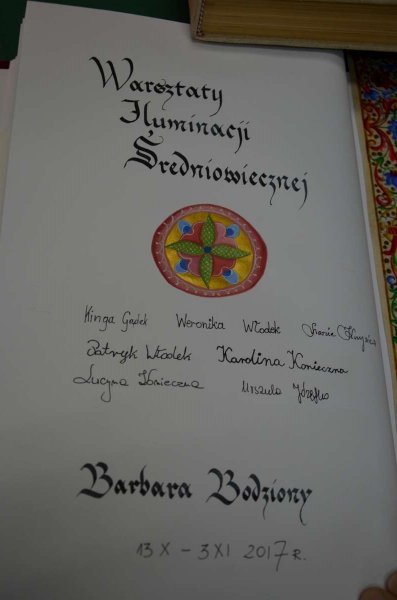 Warsztaty
Iluminacji
Średniowiecznej
Kinga Gądek Weronika Włodek
Patryk Włodek Karolina Konieczna
Lucyna Konieczna Urszula
Barbara Bodziony
13 X - 3 XI 2017 R.